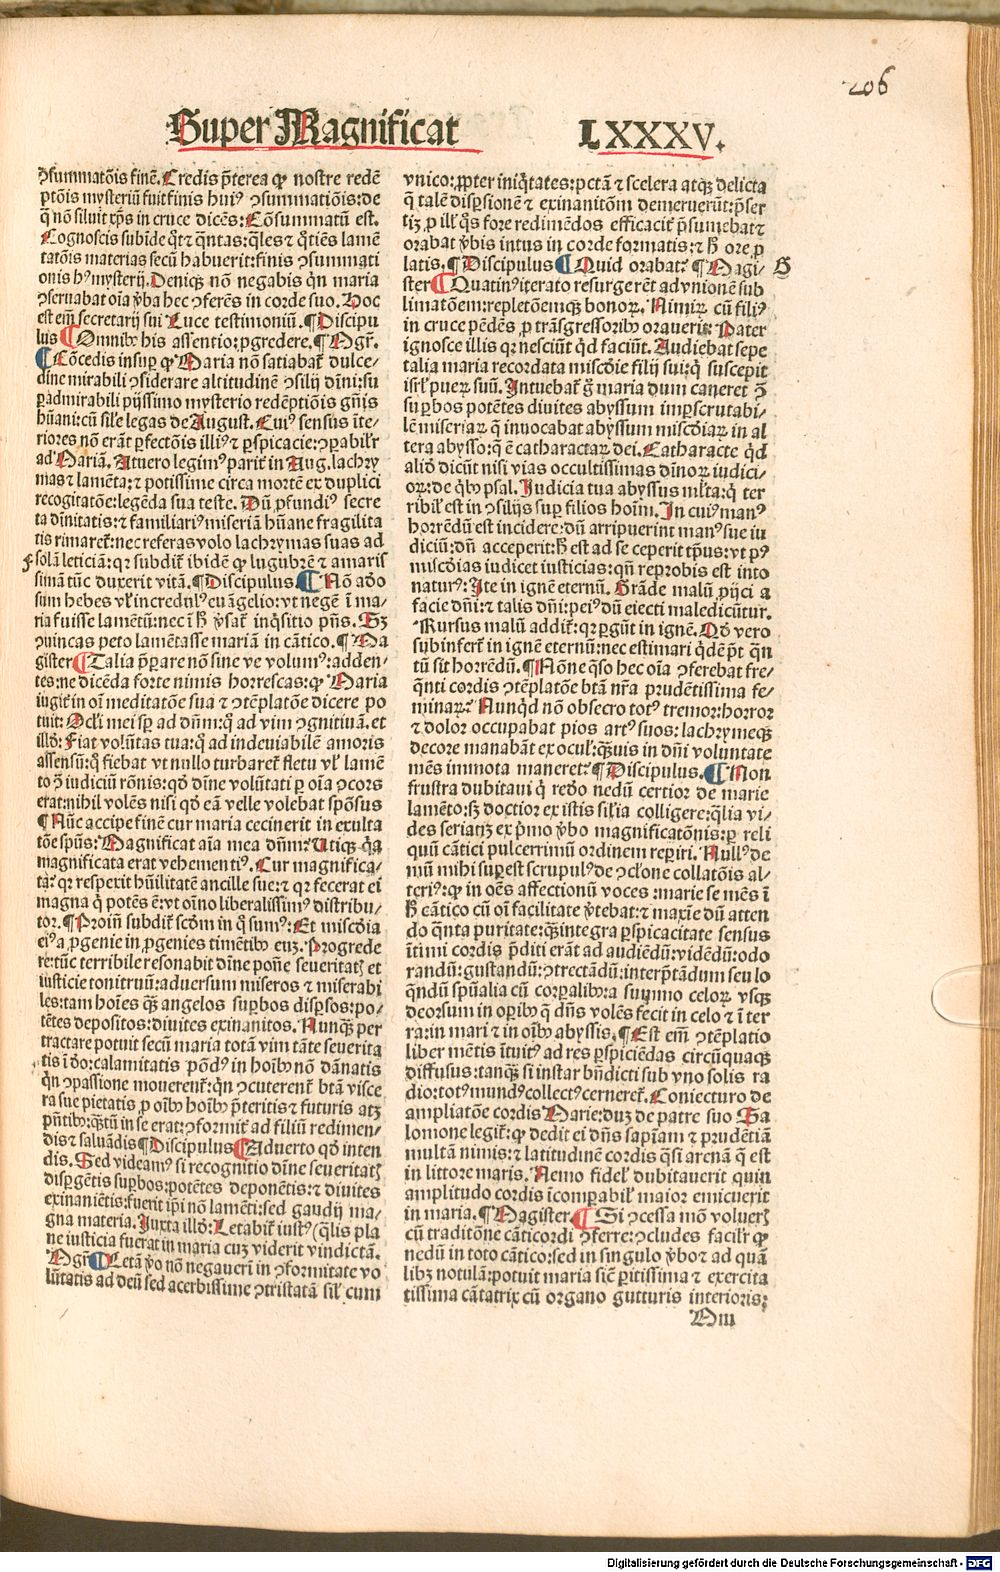 206
Super Magnificat LXXXV.
ꝯsummatõis finẽ. Credis p̃terea ꝙ nostre redẽ
ptõis mysteriũ fuit finis huiꝰ ꝯsummatiõis: de
q̃ nõ siluit xp̃s in cruce dicẽs: Cõsummatũ est.
Cognoscis subĩde q̃t ⁊ q̃ntas: q̃les ⁊ q̃tiẽs lamẽ
tatõnis materias secũ habuerit: finis ꝯsummati
onis hꝰ mysterij. Deniqꝫ nõ negabis q̃n maria
ꝯseruabat oĩa v̾ba hec ꝯferẽs in corde suo. Hoc
est em̃ secretarij sui Luce testimoniũ. ¶ Discipu
lus ¶ Omnibꝰ his assentio: ꝓgredere. ¶ Mgr̃.
¶ Cõcedis insuꝑ ꝙ Maria nõ satiabat᷑ dulce-
dine mirabili ꝯsiderare altitudinẽ ꝯsilij dĩni: su
ꝑ admirabili pijssimo mysterio redẽptiõis gñis
hũani: cũ sil̃e legas de August. Cuiꝰ sensus ĩte-
riores nõ erãt ꝑfectõis illiꝰ ⁊ ꝑspicacie: ꝯpabil᷑r
ad Mariã. At vero legimꝰ parit᷑ in Aug. lachry
mas ⁊ lamẽta: ⁊ potissime circa mortẽ ex duplici
recogitatõe: legẽda sua teste. Dũ ꝓfundiꝰ secre
ta diñitatis: ⁊ familiariꝰ miseriã hũane fragilita
tis rimaret᷑: nec referas volo lachrymas suas ad
F solã leticiã: qꝛ subdit᷑ ibidẽ ꝙ lugubrẽ ⁊ amaris
simã tũc duxerit vitã. ¶ Discipulus. ¶ Nõ adeo
sum hebes vl̃ incredulꝰ euãgelio: vt negẽ ĩ ma-
ria fuisse lamẽtũ: nec ĩ h̾ v̾sat᷑ inq̃sitio p̃ns. Sꝫ
ꝯuincas peto lamẽtasse mariã in cãtico. ¶ Ma
gister ¶ Talia p̃pare nõ sine ve volumꝰ: adden-
tes: ne dicẽda forte nimis horrescas: ꝙ Maria
iugit᷑ in oĩ meditatõe sua ⁊ ꝯtẽplatõe dicere po
tuit: Ocl̃i mei sꝑ ad dñm: q̃ ad vim ꝯgnitiuã. et
illđ: Fiat volũtas tua: q̃ ad indeuiabilẽ amoris
assensũ: q̃ fiebat vt nullo turbaret᷑ fletu vl̃ lamẽ
to ꝯ̃ iudiciũ rõnis: qđ dĩne volũtati ꝑ oĩa ꝯcors
erat: nihil volẽs nisi qđ eã velle volebat spõsus
¶ Nũc accipe finẽ cur maria cecinerit in exulta
tõe sp̃us: Magnificat aĩa mea dñm: Utiqꝫ q̃a
magnificata erat vehementiꝰ. Cur magnifica-
ta: qꝛ respexit hũilitatẽ ancille sue: ⁊ qꝛ fecerat ei
magna q̃ potẽs ẽ: vt oĩno liberalissimꝰ distribu-
tor. ¶ Proiñ subdit᷑ scđm in q̃ sumꝰ: Et miscđia
eiꝰ a ꝓgenie in ꝓgenies timẽtibꝰ euꝫ. Progrede
re: tũc terribile resonabit dĩne pone seueritatꝭ et
iusticie tonitruũ: aduersum miseros ⁊ miserabi
les: tam hoĩes q̃ꝫ angelos suꝑbos disꝑsos: po-
tẽtes depositos: diuites exinanitos. Nunqꝫ per
tractare potuit secũ maria totã vim tãte seuerita
tis ĩ đo: calamitatis põdꝰ in hoĩbꝰ nõ dãnatis
q̃n ꝯpassione mouerent᷑: q̃n ꝯcuterent᷑ bt̃ã visce
ra sue pietatis ꝓ oĩbꝰ hoĩbꝰ p̃teritis ⁊ futuris atꝫ
p̃ntibꝰ: q̃ꝫtũ in se erat: ꝯformit᷑ ad filiũ redimen-
dis ⁊ saluãdis ¶ Discipulus ¶ Aduerto qđ inten
dis. Sed videamꝰ si recognitio dĩne seueritatꝭ
disꝑgẽtis suꝑbos: potẽtes deponẽtis: ⁊ diuites
exinaniẽtis: fuerit ip̃i nõ lamẽti: sed gaudij ma-
gna materia. Juxta illđ: Letabit᷑ iustꝰ (q̃lis pla
ne iusticia fuerat in maria cuꝫ viderit vindictã.
Mgr̃ ¶ Letã v̾o nõ negauerĩ in ꝯformitate vo
lũtatis ad deũ sed acerbissime ꝯtristatã sil̃ cum
vnico: ꝓpter iniq̃tates: pctã ⁊ scelera atqꝫ delicta
q̃ talẽ disꝑsionẽ ⁊ exinanitõm demeruerũt: p̃ser
tiꝫ ꝓ ill᷑ q̃s fore redimẽdos efficacit᷑ p̃sumebat ⁊
orabat v̾bis intus in corde formatis: ⁊ h̾ ore ꝓ
latis. ¶ Discipulus ¶ Quid orabat? ¶ Magi- G
ster ¶ Quatinꝰ iterato resurgerẽt ad vnionẽ sub
limatõem: repletõemqꝫ bonoꝝ. Nimiꝝ cũ filiꝰ
in cruce pẽdẽs ꝓ trãsgressoribꝰ orauerit: Pater
ignosce illis qꝛ nesciũt q̃d faciũt. Audiebat sepe
talia maria recordata miscđie filij sui: q̃ suscepit
isr̃l pueꝝ suũ. Intuebat᷑ g̃ maria dum caneret ꝯ̃
suꝑbos potẽtes diuites abyssum imꝑscrutabi-
lẽ miseriaꝝ q̃ inuocabat abyssum miscđiaꝝ in al
tera abysso: q̃ ẽ catharactaꝝ dei. Catharacte q̃d
aliđ dicũt nisi vias occultissimas diñoꝝ iudici-
oꝝ: de q̃bꝰ psal. Judicia tua abyssus ml̃ta: q̃ ter
ribil᷑ est in ꝯsilijs suꝑ filios hoĩm. In cuiꝰ manꝰ
horrẽdũ est incidere: dũ arripuerint manꝰ sue iu
diciũ: dũ acceperit: h̾ est ad se ceperit tp̃us: vt pꝰ
miscđias iudicet iusticias: qñ reprobis est into
naturꝰ: Ite in ignẽ eternũ. Grãde malũ ꝓijci a
facie dñi: ⁊ talis dñi: peiꝰ dũ eiecti maledicũtur.
Rursus malũ addit᷑: qꝛ ꝑgũt in ignẽ. Qđ vero
subinfert᷑ in ignẽ eternũ: nec estimari q̃dẽ p̃t q̃n
tũ sit horrẽdũ. ¶ Nõne q̃so hec oĩa ꝯferebat fre-
q̃nti cordis ꝯtẽplatõe bt̃ã nr̃a prudẽtissima fe-
minaꝝ? Nunq̃d nõ obsecro totꝰ tremor: horror
⁊ dolor occupabat pios artꝰ suos: lachrymeqꝫ
decore manabãt ex ocul᷑: q̃ꝫuis in dñi voluntate
mẽs immota maneret? ¶ Discipulus. ¶ Non
frustra dubitaui q̃ređo nedũ certior de marie
lamẽto: sꝫ doctior ex istis sil̃ia colligere: q̃lia vi-
des seriatꝫ ex p̃mo v̾bo magnificatõnis: ꝑ reli
quũ cãtici pulcerrimũ ordinem reꝑiri. Nullꝰ de
mũ mihi suꝑest scrupulꝰ de ꝯclone collatõis al-
teriꝰ: ꝙ in oẽs affectionũ voces: marie se mẽs ĩ
h̾ cãtico cũ oĩ facilitate v̾tebat: ⁊ maxĩe dũ atten
do q̃nta puritate: q̃ꝫ integra ꝑspicacitate sensus
ĩtimi cordis p̃diti erãt ad audiẽdũ: vidẽdũ: odo
randũ: gustandũ: ꝯtrectãdũ: interp̃tãdum seu lo
q̃ndũ sp̃ualia cũ corꝑalibꝰ: a summo celoꝝ vsqꝫ
deorsum in oꝑibꝰ q̃ dñs volẽs fecit in celo ⁊ ĩ ter
ra: in mari ⁊ in oĩbꝰ abyssis. ¶ Est em̃ ꝯtẽplatio
liber mẽtis ĩtuitꝰ ad res ꝑspiciẽdas circũquaqꝫ
diffusus: tanqꝫ si instar bñdicti sub vno solis ra
dio: totꝰ mundꝰ collectꝰ cerneret᷑. Coniecturo de
ampliatõe cordis Marie: duꝫ de patre suo Sa
lomone legit᷑: ꝙ dedit ei dñs sapĩam ⁊ prudẽtiã
multã nimis: ⁊ latitudinẽ cordis q̃si arenã q̃ est
in littore maris. Nemo fidel᷑ dubitauerit quin
amplitudo cordis ĩcomꝑabil᷑ maior emicuerit
in maria. ¶ Magister. ¶ Si ꝯcessa mõ volueꝭ
cũ traditõne cãticordi ꝯferre: ꝯcludes facil᷑r ꝙ
nedũ in toto cãtico: sed in singulo v̾bo ⁊ ad quã
libꝫ notulã: potuit maria siẽ ꝑitissima ⁊ exercita
tissima cãtatrix cũ organo gutturis interioris:
M iii
Digitalisierung gefördert durch die Deutsche Forschungsgemeinschaft - DFG